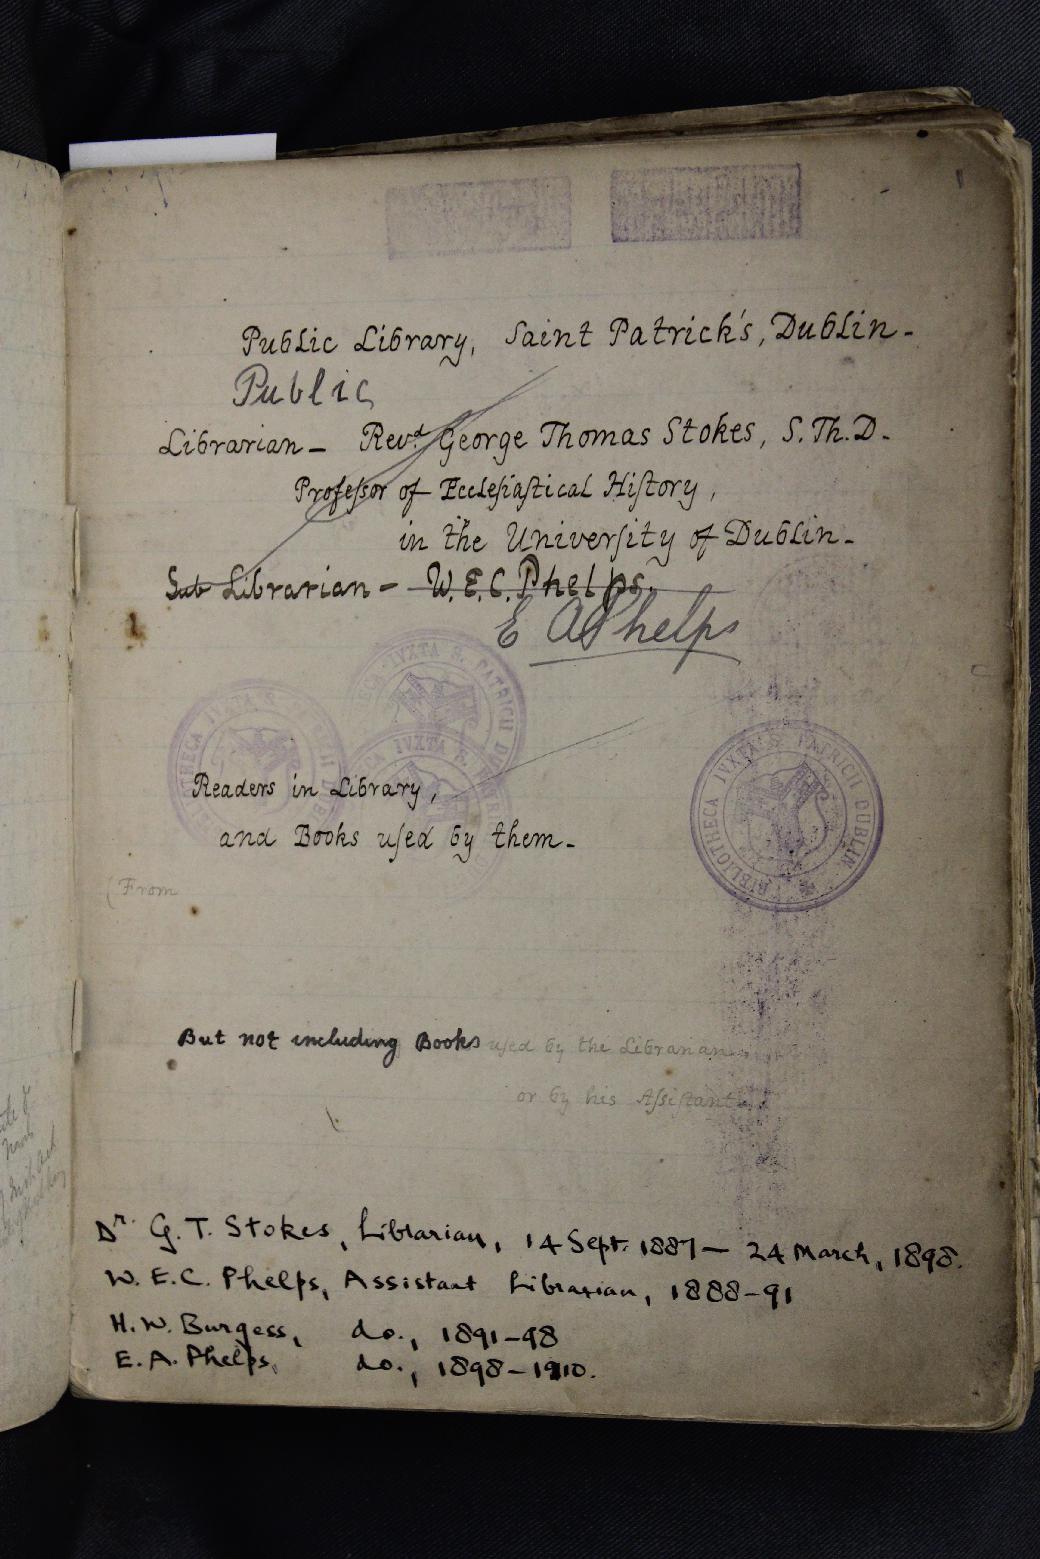 Public Library, Saint Patrick's, Dublin-
Public
Librarian- Revd. George Thomas Stokes, S.Th.D-
Profeſsor of Eccleſiaſtical Hiſtory,
in the Univerſity of Dublin-
Sub Librarian- W.E.C. Phelps.
E A Phelps
Readers in Library,
and Books uſed by them-
(From
But not including Books uſed by the Librarian
or by his Aſsiſtant
Dr. G. T. Stokes, Librarian, 14 Sept. 1887- 24 March, 1898.
W. E. C. Phelps, Assistant Librarian, 1888-91
H. W. Burgess, do., 1891-98
E. A. Phelps, do., 1898-1910.
BIBLIOTHECA IUXTA S. PATRICII DUBLIN